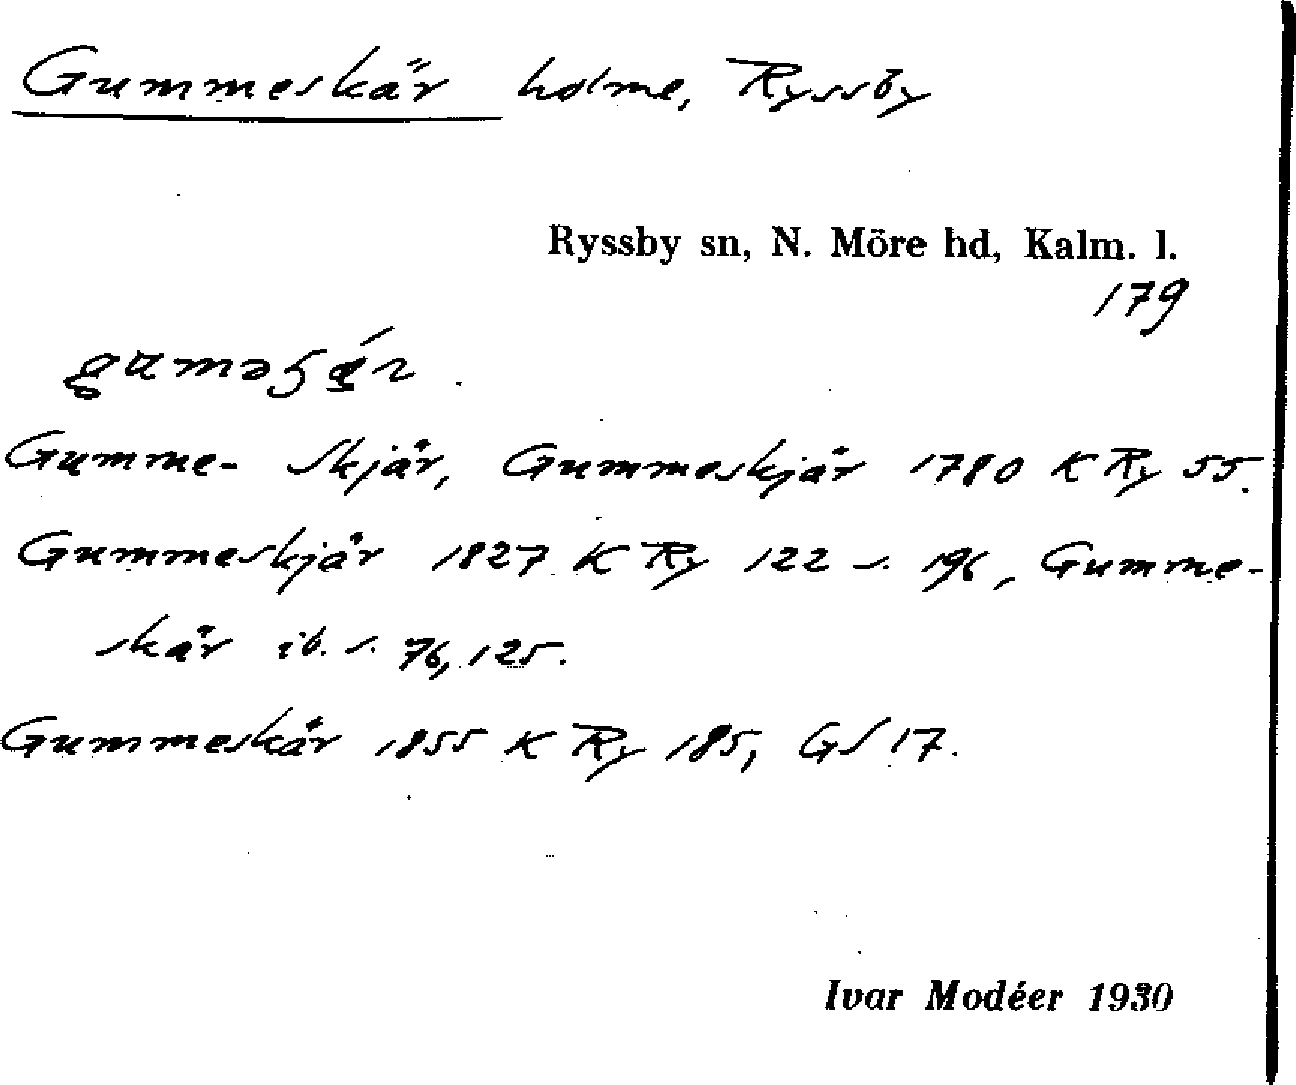 Gummeskär holme, Ryssby
Ryssby sn, N. Möre hd, Kalm. l.
179
Gumme- Skjär, Gummeskjär 1780 K Ry 55.
Gummeskjär 1827 K Ry 122 s. 196, Gumme-
skär ib. s. 76, 125.
Gummeskär 1855 K Ry 185, GS 17.
Ivar Modéer 1930